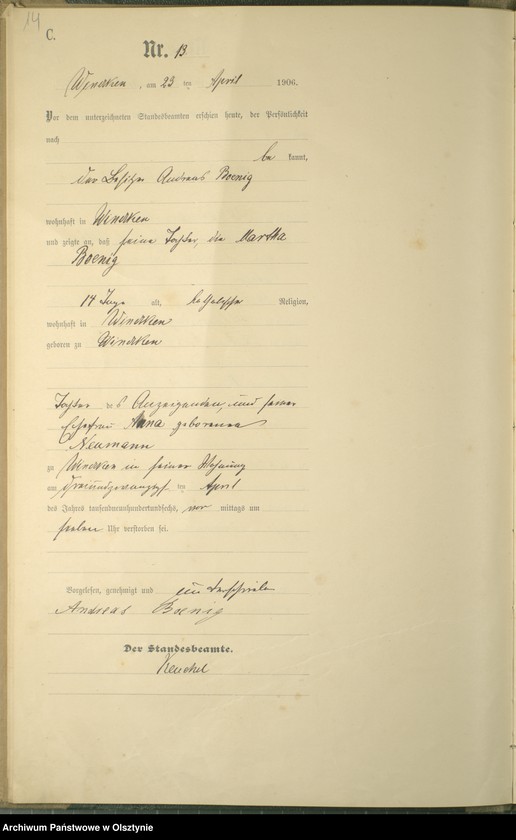 14
C.
Nr. 13
Windtken, am 23 ten April 1906.
Vor dem unterzeichneten Standesbeamten erschien heute, der Persönlichkeit
nach
be kannt,
der Besitzer Andreas Boenig
wohnhaft in Windtken
und zeigte an, daß seine Tochter, die Martha
Boenig
14 Tage alt, katholischer Religion,
wohnhaft in Windtken
geboren zu Windtken
Tochter des Anzeigenden, und seiner
Ehefrau Anna geborenen
Neumann
zu Windtken in seiner Wohnung
am dreiundzwanzigsten ten April
des Jahres tausendneunhundertundsechs, vor mittags um
sieben Uhr verstorben sei.
Vorgelesen, genehmigt und unterschrieben
Andreas Boenig
Der Standesbeamte.
Archiwum Państwowe w Olsztynie